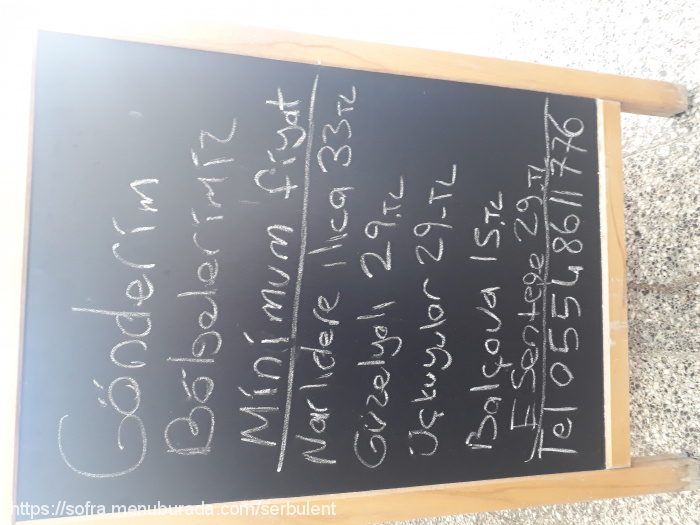 Gönderim
Bölgelerimiz
Minimum fiyat
Narlıdere ılıca 33 TL
Güzelyalı 29.TL
Üçkuyular 29-TL
Balçova 15.TL
Esentepe 29.TL
Tel 05548611776
https://sofra.menuburada.com/serbulent